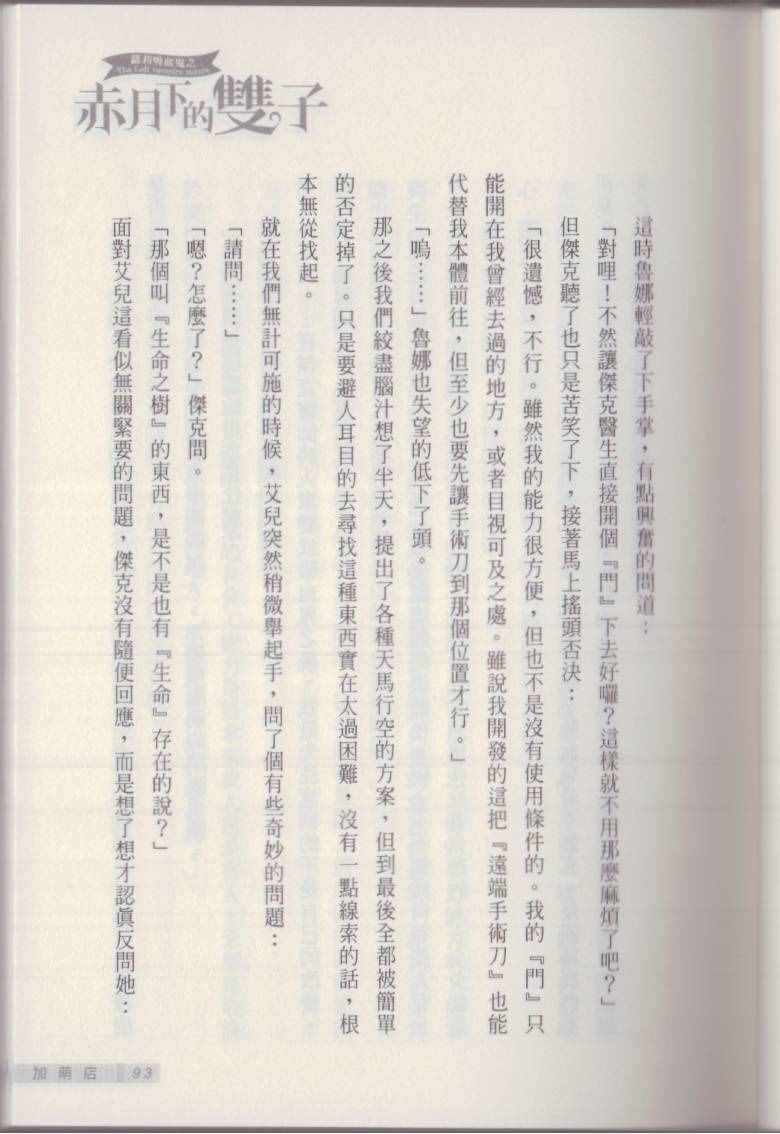 蘿莉吸血鬼之
The Loli vampire
赤月下的雙子
這時魯娜輕敲了下手掌，有點興奮的問道：
「對哩！不然讓傑克醫生直接開個『門』下去好囉？這樣就不用那麼麻煩了吧？」
但傑克聽了也只是苦笑了下，接著馬上搖頭否決：
「很遺憾，不行。雖然我的能力很方便，但也不是沒有使用條件的。我的『門』只
能開在我曾經去過的地方，或者目視可及之處。雖說我開發的這把『遠端手術刀』也能
代替我本體前往，但至少也要先讓手術刀到那個位置才行。」
「嗚……」魯娜也失望的低下了頭。
那之後我們絞盡腦汁想了半天，提出了各種天馬行空的方案，但到最後全都被簡單
的否定掉了。只是要避人耳目的去尋找這種東西實在太過困難，沒有一點線索的話，根
本無從找起。
就在我們無計可施的時候，艾兒突然稍微舉起手，問了個有些奇妙的問題：
「請問……」
「嗯？怎麼了？」傑克問。
「那個叫『生命之樹』的東西，是不是也有『生命』存在的說？」
面對艾兒這看似無關緊要的問題，傑克沒有隨便回應，而是想了想才認真反問她：
加萌店 93